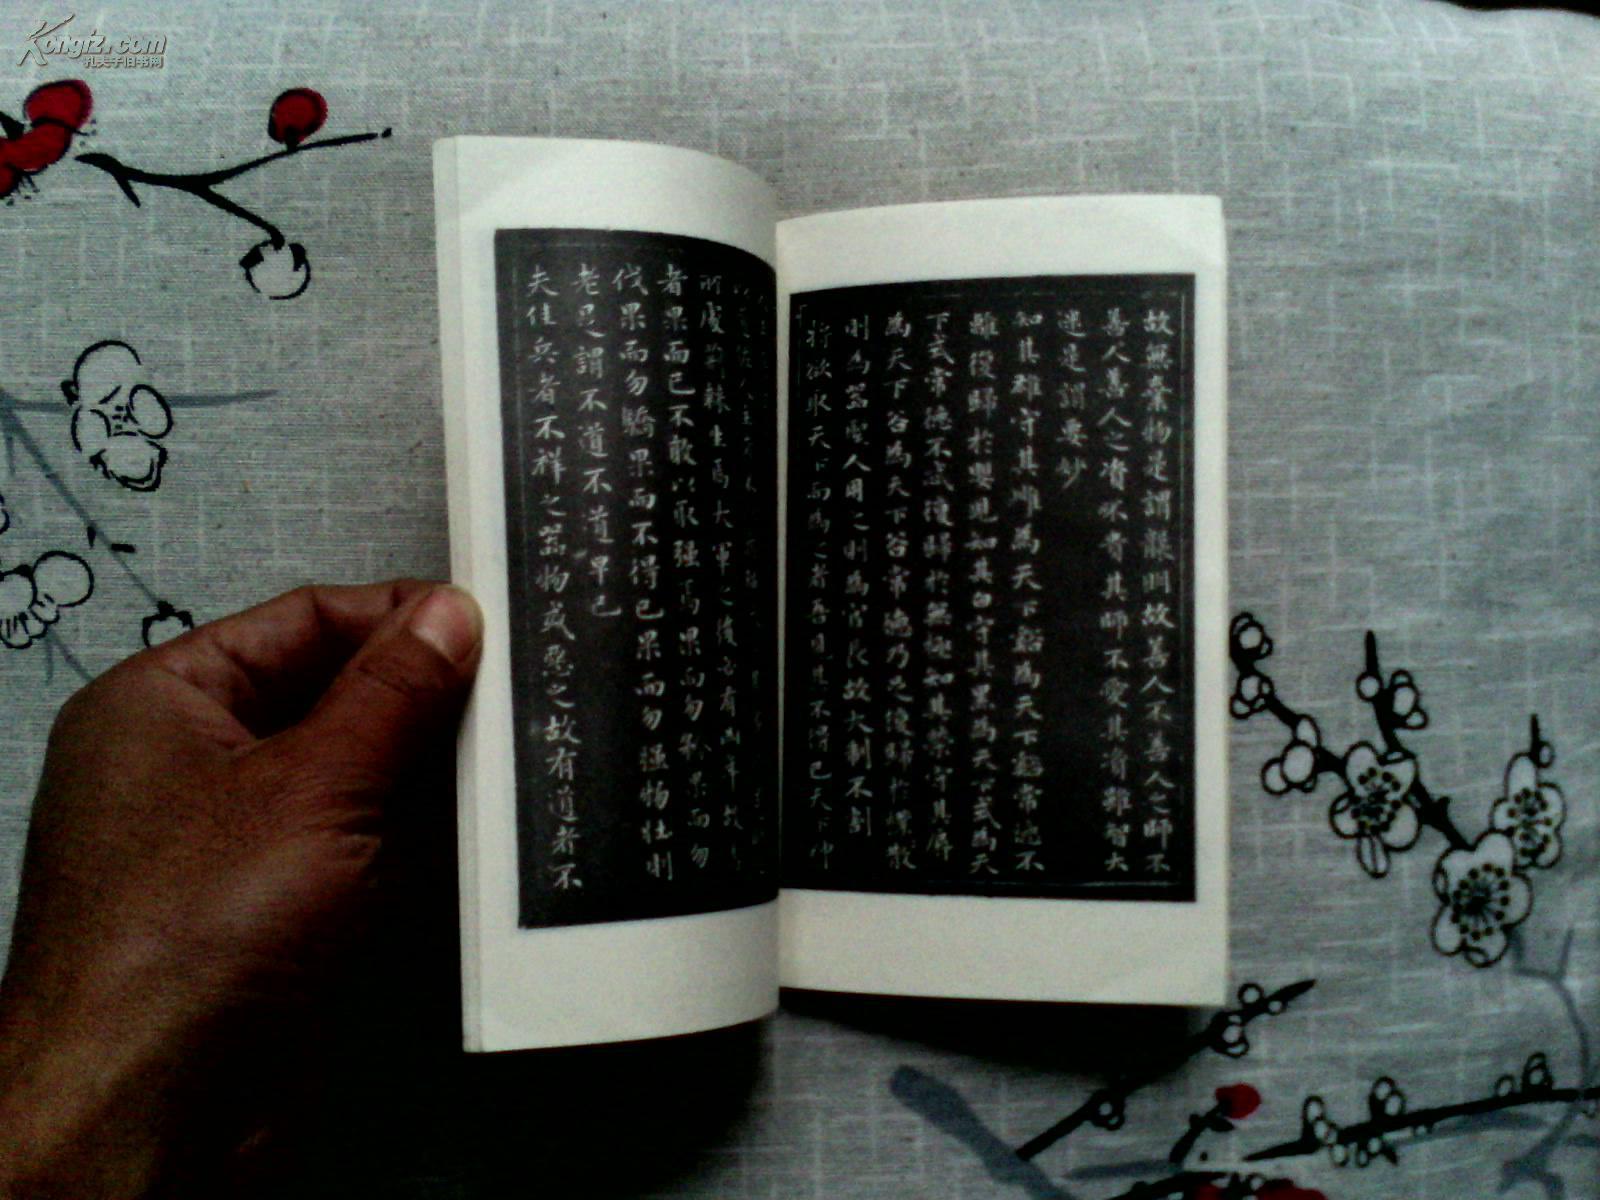 Kongfz.com
孔夫子旧书网
故無棄物是謂襲明故善人不善人之師不
善人善人之資不貴其師不愛其資雖智大
迷是謂要妙
知其雄守其雌為天下谿為天下谿常德不
離復歸於嬰兒知其白守其黑為天下式為天
下式常德不忒復歸於無極知其榮守其辱
為天下谷為天下谷常德乃足復歸於樸散
則為器聖人用之則為官長故大制不割
將欲取天下而為之者吾見其不得已天下神
所處荊棘生焉大軍之後必有凶年故
者果而已不敢以取強焉果而勿矜果而勿
伐果而勿驕果而不得已果而勿強物壯則
老是謂不道不道早已
夫佳兵者不祥之器物或惡之故有道者不